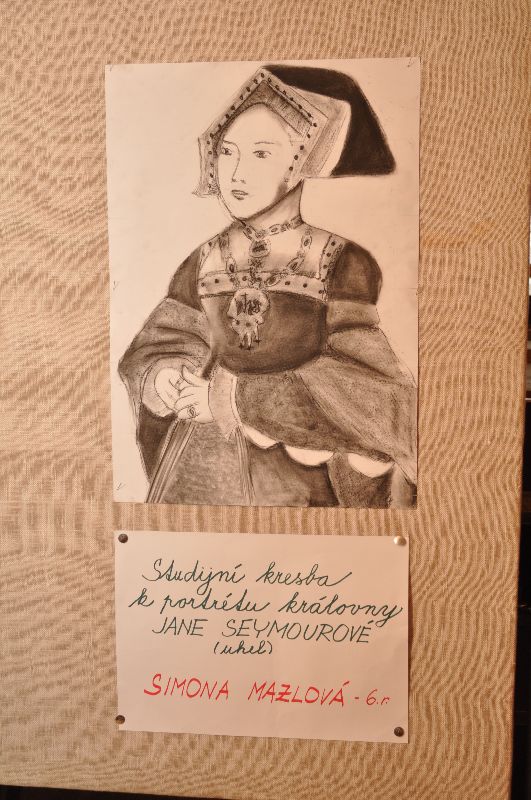 Studijní kresba
k portrétu královny
JANE SEYMOUROVÉ
(uhel)
SIMONA MAZLOVÁ - 6.r.